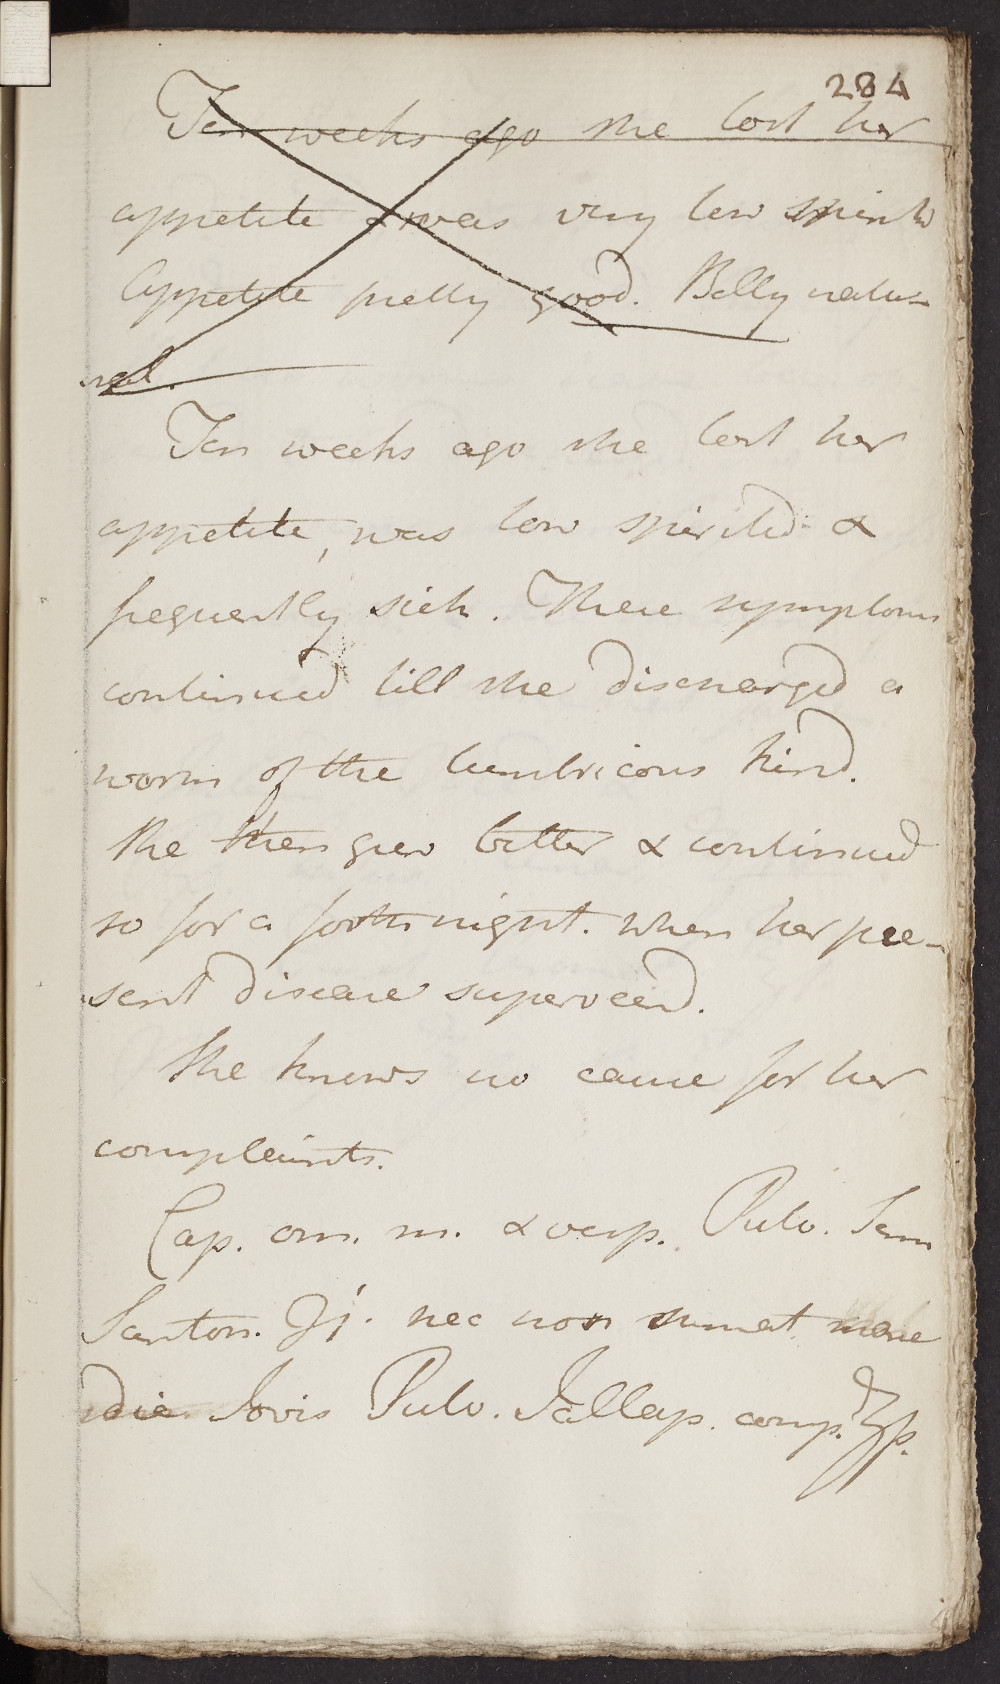 284
Ten weeks ago she lost her
appetite & was very low spirits
Appetite pretty good. Belly natu-
ral.
Ten weeks ago she lost her
appetite, was low spirited &
frequently sick. These symptoms
continued till she discharged a
worm of the lumbricous kind.
She then grew better & continued
so for a forthnight. when her pre-
sent disease superveend.
She knows no cause for her
complaints.
Cap. om. m. & vesp. Pulv. Sem
Santon. ʒj. nec non sumat mane
die Jovis Pulv. Jallap. comp. ʒſs.